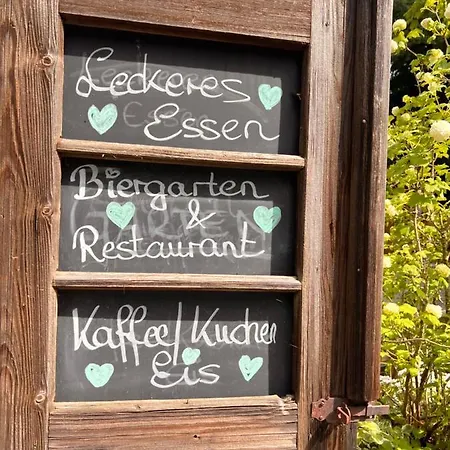 Leckeres
Essen
Biergarten
&
Restaurant
Kaffee/Kuchen
Eis